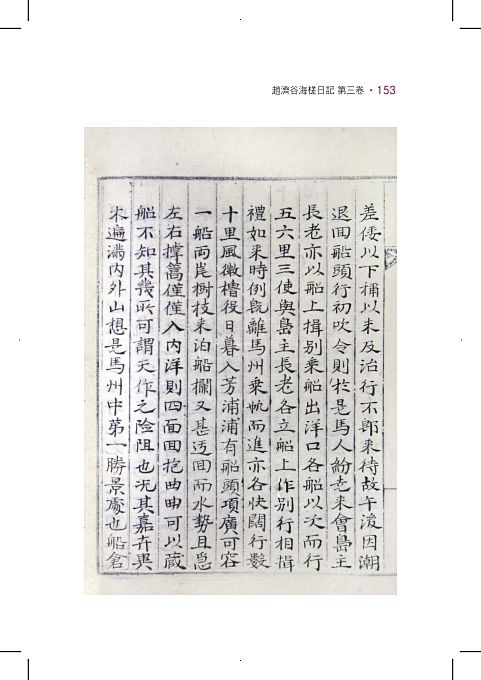 趙濟谷海槎日記 第三卷 · 153
差倭以下桶以未及治行不郎来待故午後因潮
退回船頭行初吹令則於是馬人紛
来會島主
長老亦以船上揖别乗船出洋口各船以次而行
五六里三使與島主長老各立船上作别行相揖
禮如来時例旣離馬州乗帆而進亦各快闊行數
十里風微櫓役日暮入芳浦浦有船頭項廣可容
一船両崖樹枝来泊船欄又甚迃回而水勢且急
左右撑篙僅僅入内洋則四面回抱曲曲可以藏
船不知其幾所可謂天作之險阻也況其嘉卉異
木遍満内外山想是馬州中第一勝景處也船倉